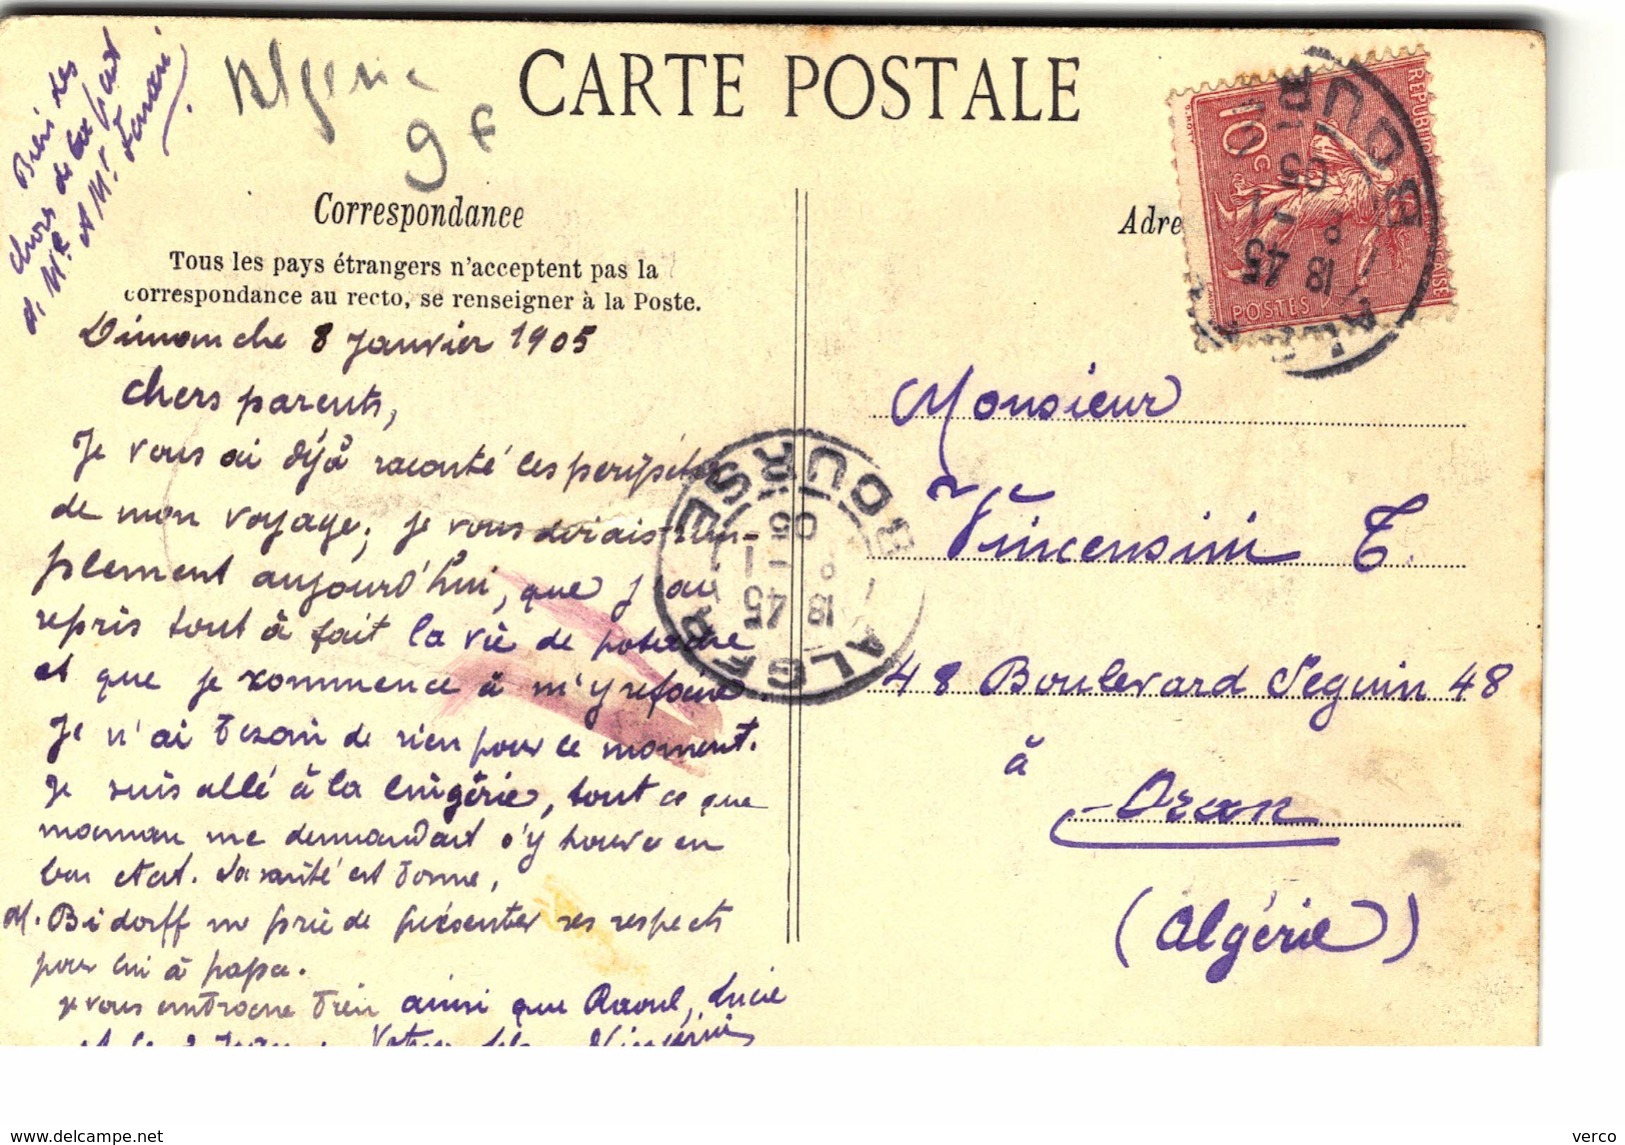 Bien des
choses de la part
à Mr
A Mr.
Algérie
9 F
CARTE POSTALE
Correspondance
Tous les pays étrangers n'acceptent pas la
correspondance au recto, se renseigner à la Poste.
Adre
REPUBLIQUE FRANÇAISE
10 c
POSTES
BOU
ALGER
18 45
05
Dimanche 8 Janvier 1905
Chers parents,
Je vous ai déjà raconté les péripéties
de mon voyage; je vous dirais sim-
plement aujourd'hui, que j'ai
repris tout à fait la vie de potache
et que je commence à m'y refaire.
Je n'ai besoin de rien pour ce moment.
Je suis allé à la lingerie, tout ce que
maman me demandait s'y trouve en
bon état. La santé est bonne,
M. Bidorff me prie de présenter ses respects
pour lui à papa.
Je vous embrasse bien ainsi que Raoul, Lucie
et
Votre fils Vincensini
BOURSE
ALGER
18 45
05
Monsieur
Vincensini T.
48 Boulevard Seguin 48
à
Oran
(Algérie)
delcampe.net
verco